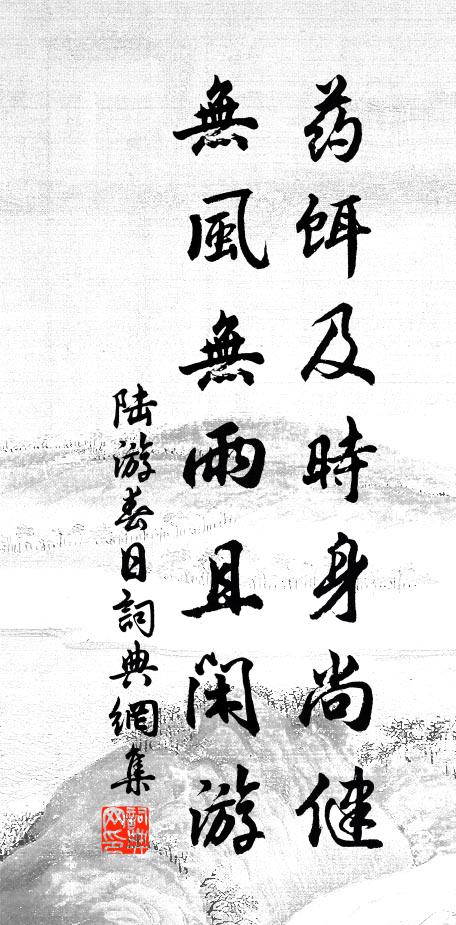 药餌及時身尚健
無風無雨且閑游
陆游春日詞典網集